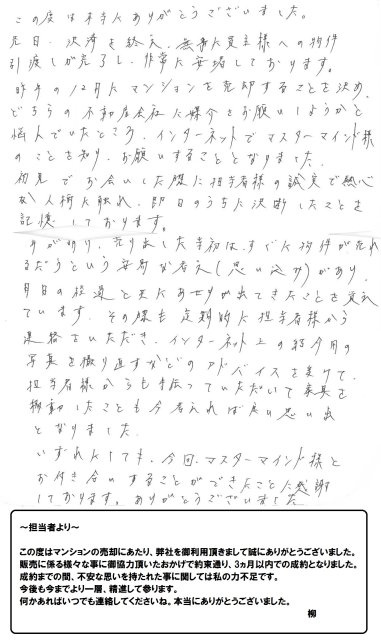 この度は本当にありがとうございました。
先日、決済を終え、無事に買主様への物件
引渡しが完了し、非常に安堵しております。
昨年の12月にマンションを売却することを決め、
どちらの不動産会社に媒介をお願いしようかと
悩んでいたところ、インターネットでマスターマインド様
のことを知り、お願いすることとなりました。
初見でお会いした際に担当者様の誠実で熱心
な人柄に触れ、即日のうちに決断したことを
記憶しております。
年が明け、売り出した当初は、すぐに物件が売れ
るだろうという安易な考え(思い込み)があり、
月日の経過と共にあせりが出てきたことを覚え
ています。その際も定期的に担当者様から
連絡をいただき、インターネット上の紹介用の
写真を撮り直すなどのアドバイスを受けて、
担当者様からも手伝っていただいて家具を
移動したことも今考えれば良い思い出
となりました。
いずれにしても、今回、マスターマインド様と
お付き合いすることができたことに感謝
しております。ありがとうございました
～担当者より～
この度はマンションの売却にあたり、弊社を御利用頂きまして誠にありがとうございました。
販売に係る様々な事に御協力頂いたおかげで約束通り、3ヵ月以内での成約となりました。
成約までの間、不安な思いを持たれた事に関しては私の力不足です。
今後も今までより一層、精進して参ります。
何かあればいつでも連絡してくださいね。本当にありがとうございました。
柳